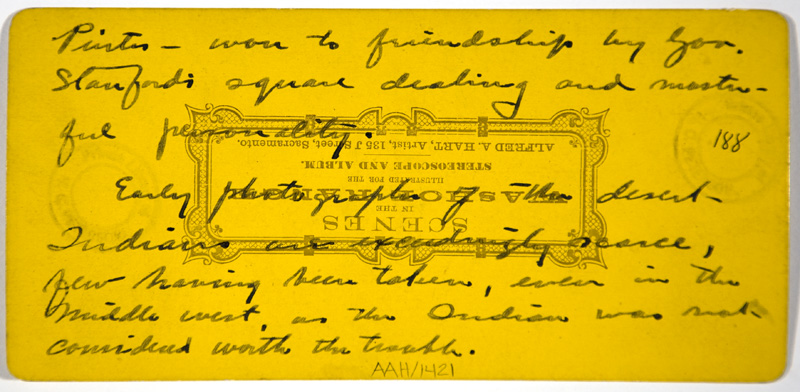 Piutes — won to friendship by Gov.
Stanford's square dealing and master-
ful personality.
188
Early photographs of the desert
Indians are exceedingly scarce,
few having been taken, even in the
Middle west, as the Indian was not
considered worth the trouble.
AAH/1421
SCENES
IN THE
ILLUSTRATED FOR THE
STEREOSCOPE AND ALBUM.
ALFRED A. HART, Artist, 135 J Street, Sacramento.